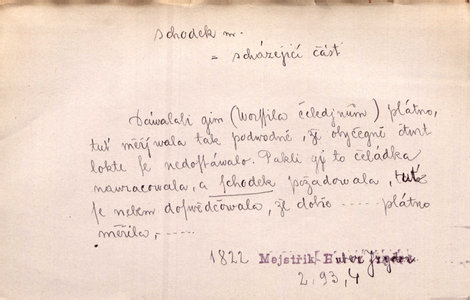 schodek m.
= scházející část
Dáwalali gim (Worssila čeledjnům) plátno,
tuť měřjwala tak podwodně, že obyčegně čtwrt
lokte se nedostáwalo. Pakli gj to čeládka
nawracowala, a schodek požadowala, tuť
se nebem doswědčowala, že dobře ..... plátno
měřila, .....
1822 Mejstřík
2, 93, 4